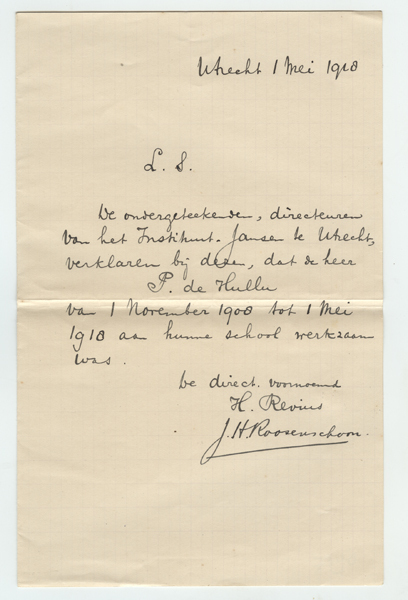 Utrecht 1 Mei 1918
L. S.
De ondergeteekenden, directeuren
van het Instituut-Jansen te Utrecht,
verklaren bij dezen, dat de heer
P. de Hullu
van 1 November 1908 tot 1 Mei
1918 aan hunne school werkzaam
was.
De direct. voornoemd
H. Revius
J. H. Roosenschoon.